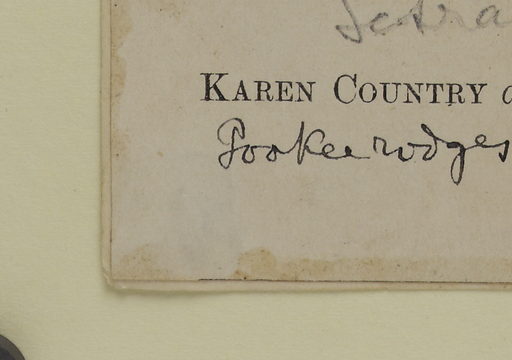 Tetra
KAREN COUNTRY
Pookee rodges